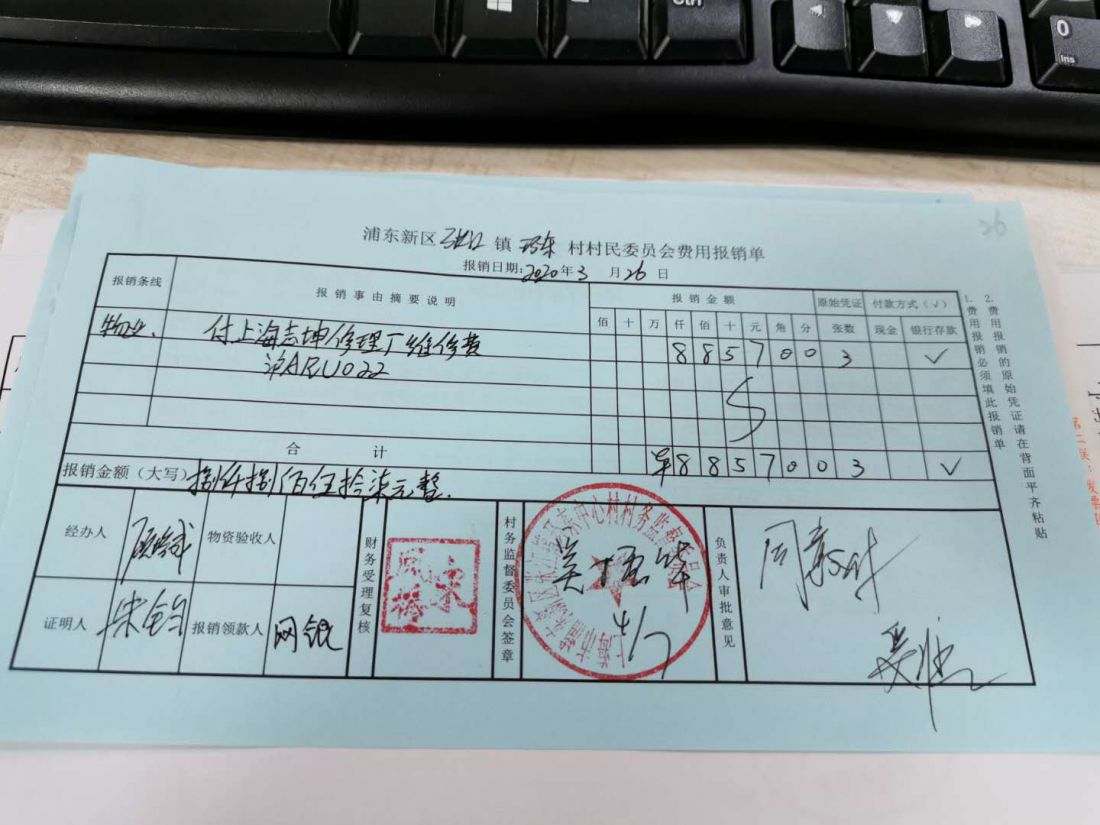 Ctrl
0
Ins
26
浦东新区 张江 镇 环东 村村民委员会费用报销单
报销日期:2020年3月26日
报销条线 报销事由摘要说明 报销金额 原始凭证 付款方式(√)
佰 十 万 仟 佰 十 元 角 分 张数 现金 银行存款
物业. 付上海志坤修理厂维修费 8 8 5 7 0 0 3 √
沪ARU022
合计 ¥ 8 8 5 7 0 0 3 √
报销金额(大写) 捌仟捌佰伍拾柒元整.
经办人 物资验收人
证明人 报销领款人 网银
财务受理复核
村务监督委员会签章
4/7
负责人审批意见
同意支付
1.费用报销必须填此报销单
2.费用报销的原始凭证请在背面平齐粘贴